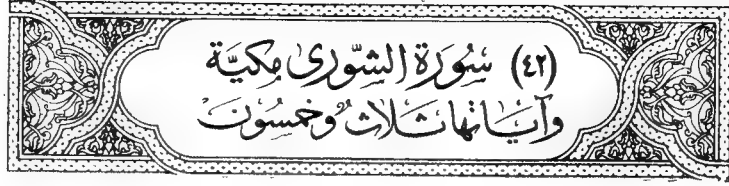 (٤٢) سُورَةُ الشّورىٰ مكيَّة
وَآيَاتها ثَلاثٌ وَخمسُونَ